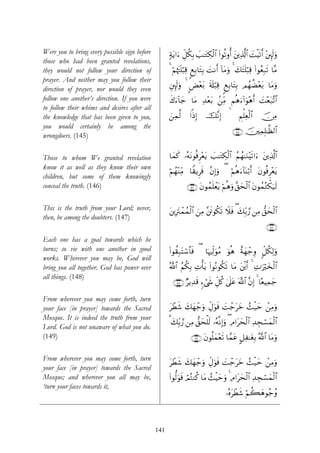 Were you to bring every possible sign before
those who had been granted revelations,
they would not follow your direction of
prayer. And neither may you follow their
direction of prayer, nor would they even
follow one another's direction. If you were
to follow their whims and desires after all
the knowledge that has been given to you,
you would certainly be among the
wrongdoers. (145)
وَلَئِنْ أَتَيْتَ الَّذِينَ أُوتُوا الْكِتَابَ بِكُلِّ آيَةٍ
مَّا تَبِعُوا قِبْلَتَكَ ۚ وَمَا أَنتَ بِتَابِعٍ قِبْلَتَهُمْ ۚ
وَمَا بَعْضُهُم بِتَابِعٍ قِبْلَةَ بَعْضٍ ۚ وَلَئِنِ
اتَّبَعْتَ أَهْوَاءَهُم مِّن بَعْدِ مَا جَاءَكَ
مِنَ الْعِلْمِ ۙ إِنَّكَ إِذًا لَّمِنَ
الظَّالِمِينَ ﴿١٤٥﴾
Those to whom We granted revelation
know it as well as they know their own
children, but some of them knowingly
conceal the truth. (146)
الَّذِينَ آتَيْنَاهُمُ الْكِتَابَ يَعْرِفُونَهُ كَمَا
يَعْرِفُونَ أَبْنَاءَهُمْ ۖ وَإِنَّ فَرِيقًا مِّنْهُمْ
لَيَكْتُمُونَ الْحَقَّ وَهُمْ يَعْلَمُونَ ﴿١٤٦﴾
This is the truth from your Lord; never,
then, be among the doubters. (147)
الْحَقُّ مِن رَّبِّكَ ۖ فَلَا تَكُونَنَّ مِنَ الْمُمْتَرِينَ
﴿١٤٧﴾
Each one has a goal towards which he
turns; so vie with one another in good
works. Wherever you may be, God will
bring you all together. God has power over
all things. (148)
وَلِكُلٍّ وِجْهَةٌ هُوَ مُوَلِّيهَا ۖ فَاسْتَبِقُوا
الْخَيْرَاتِ ۚ أَيْنَ مَا تَكُونُوا يَأْتِ بِكُمُ اللَّهُ
جَمِيعًا ۚ إِنَّ اللَّهَ عَلَىٰ كُلِّ شَيْءٍ قَدِيرٌ ﴿١٤٨﴾
From wherever you may come forth, turn
your face [in prayer] towards the Sacred
Mosque. It is indeed the truth from your
Lord. God is not unaware of what you do.
(149)
وَمِنْ حَيْثُ خَرَجْتَ فَوَلِّ وَجْهَكَ شَطْرَ
الْمَسْجِدِ الْحَرَامِ ۖ وَإِنَّهُ لَلْحَقُّ مِن رَّبِّكَ ۗ
وَمَا اللَّهُ بِغَافِلٍ عَمَّا تَعْمَلُونَ ﴿١٤٩﴾
From wherever you may come forth, turn
your face [in prayer] towards the Sacred
Mosque; and wherever you all may be,
'turn your faces towards it,
وَمِنْ حَيْثُ خَرَجْتَ فَوَلِّ وَجْهَكَ شَطْرَ
الْمَسْجِدِ الْحَرَامِ ۚ وَحَيْثُ مَا كُنتُمْ فَوَلُّوا
وُجُوهَكُمْ شَطْرَهُ
141